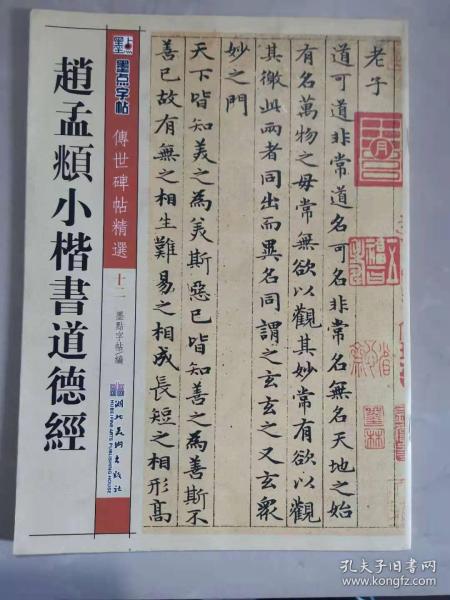 趙孟頫小楷書道德經
墨点字帖
傳世碑帖精選
十二
墨點字帖/編
湖北美术出版社
HUBEI FINE ARTS PUBLISHING HOUSE
老子
道可道非常道名可名非常名無名天地之始
有名萬物之母常無欲以觀其妙常有欲以觀
其徼此兩者同出而異名同謂之玄玄之又玄眾
妙之門
天下皆知美之為美斯惡已皆知善之為善斯不
善已故有無之相生難易之相成長短之相形高
墨林
孔夫子旧书网
www.kongfz.com